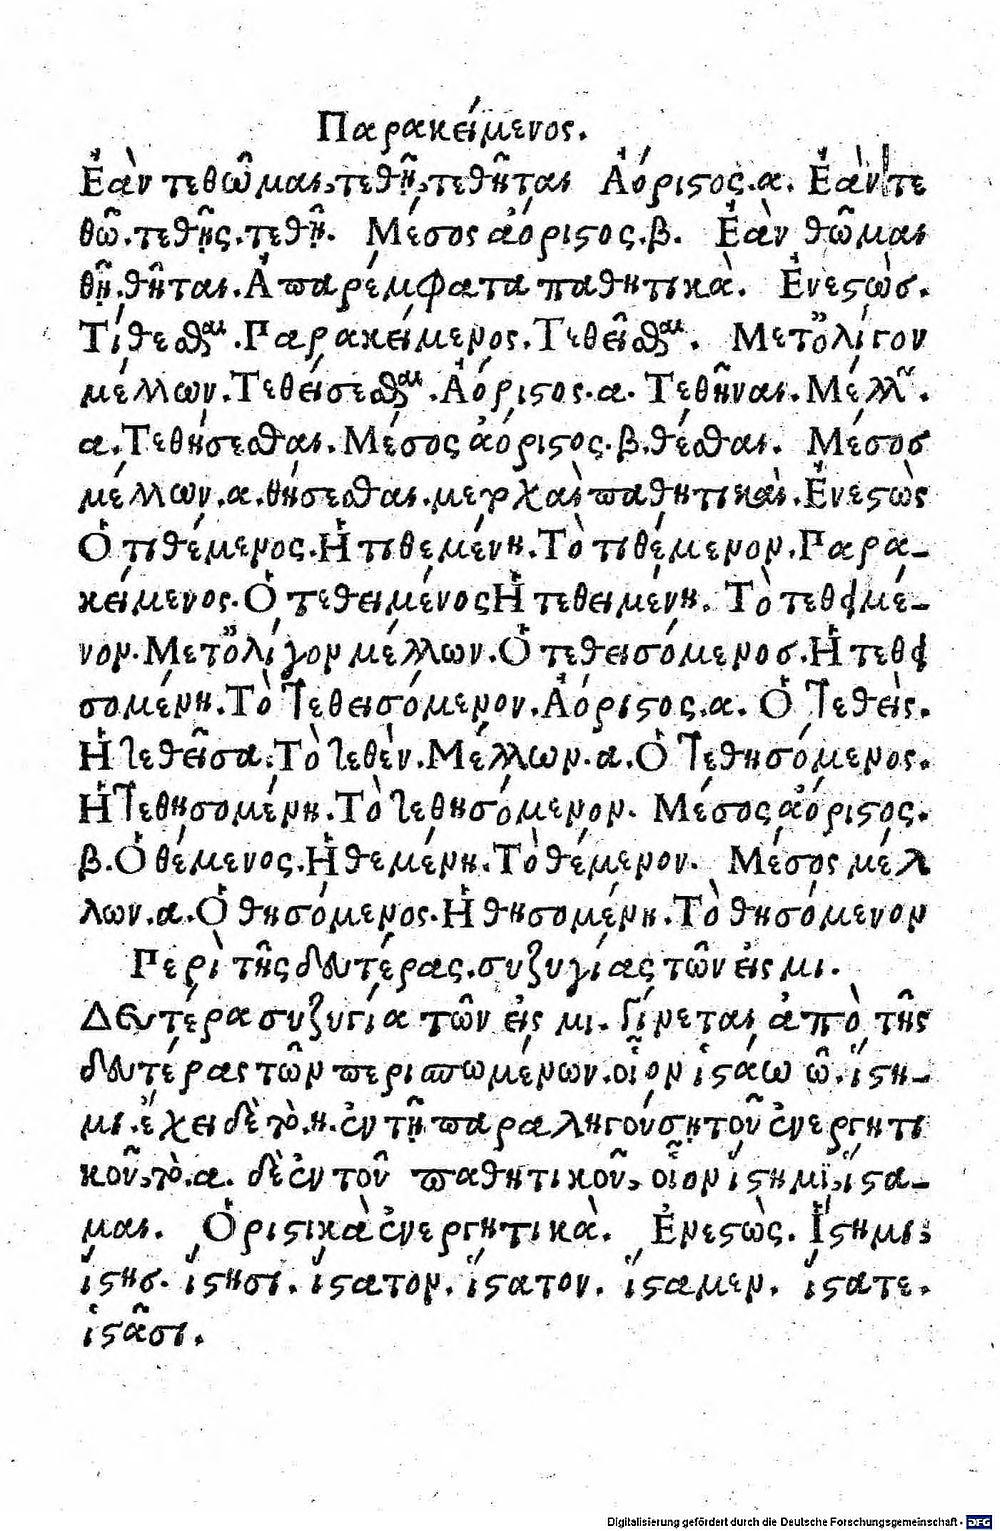 Παρακείμενος.
Ἐὰν τεθῶμαι, τεθῇ, τεθῆται Ἀόριστος.α. Ἐὰν τε
θῶ.τεθῇς.τεθῇ. Μέσος ἀόριστος.β. Ἐὰν θῶμαι
θῇ.θῆται.Ἀπαρέμφατα παθητικὰ. Ἐνεστὼσ.
Τίθεσθαι.Παρακείμενος.Τεθεῖσθαι. Μετὀλίγον
μέλλων.Τεθείσεσθαι.Ἀόριστος.α. Τεθῆναι.Μέλλων.
α.Τεθήσεσθαι.Μέσος ἀόριστος.β.θέσθαι. Μέσοσ
μέλλων.α.θήσεσθαι.μετοχαὶ παθητικαὶ.Ἐνεστὼς
Ὁ τιθέμενος.Ἡ τιθεμένη.Τὸ τιθέμενον.Παρα-
κείμενος.Ὁ τεθειμένος Ἡ τεθειμένη. Τὸ τεθειμέ-
νον.Μετὀλίγον μέλλων.Ὁ τεθεισόμενοσ.Ἡ τεθει
σομένη.Τὸ τεθεισόμενον.Ἀόριστος.α. Ὁ τεθεὶς.
Ἡ τεθεῖσα.Τὸ τεθὲν.Μέλλων.α.Ὁ τεθησόμενος.
Ἡ τεθησομένη.Τὸ τεθησόμενον. Μέσος ἀόριστος.
β.Ὁ θέμενος.Ἡ θεμένη.Τὸ θέμενον. Μέσος μέλ
λων.α.Ὁ θησόμενος.Ἡ θησομένη.Τὸ θησόμενον
Περὶ τῆς δευτέρας.συζυγίας τῶν εἰς μι.
Δευτέρα συζυγία τῶν εἰς μι. γίνεται ἀπὸ τῆς
δευτέρας τῶν περισπωμένων.οἷον ἱστάω ῶ.ἵστη-
μι.ἔχει δὲ τὸ.η.ἐν τῇ παραληγούσῃ τοῦ ἐνεργητι
κοῦ, τὸ.α. δὲ ἐν τοῦ παθητικοῦ, οἷον ἵστημι, ἵστα-
μαι. Ὁριστικὰ ἐνεργητικὰ. Ἐνεστὼς. Ἵστημι:
ἵστησ. ἵστησι. ἵστατον. ἵστατον. ἵσταμεν. ἵστατε.
ἱστᾶσι.
Digitalisierung gefördert durch die Deutsche Forschungsgemeinschaft - DFG